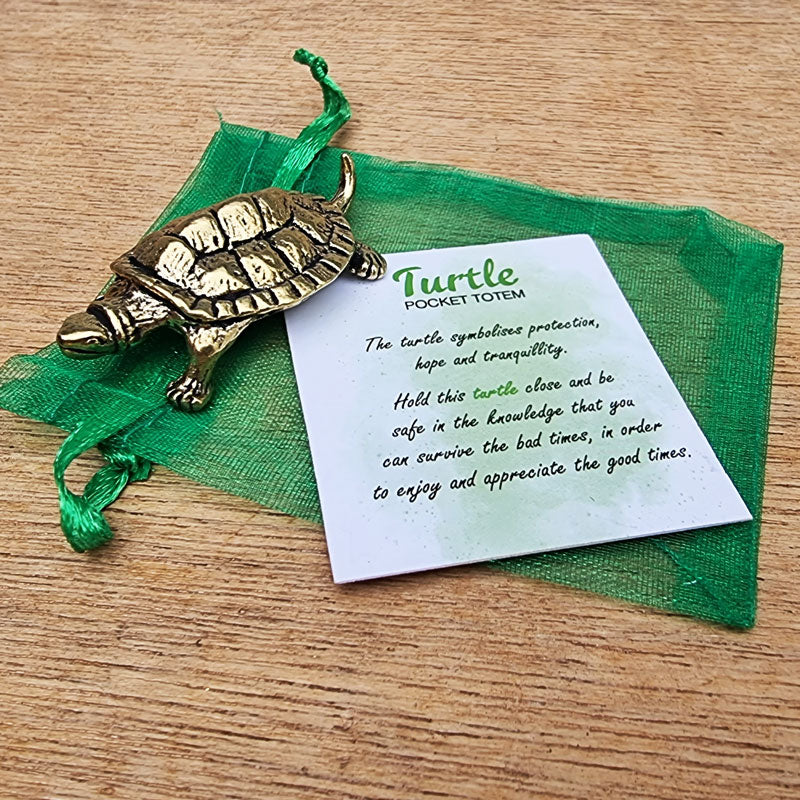 Turtle
POCKET TOTEM
The turtle symbolises protection,
hope and tranquillity.
Hold this turtle close and be
safe in the knowledge that you
can survive the bad times, in order
to enjoy and appreciate the good times.